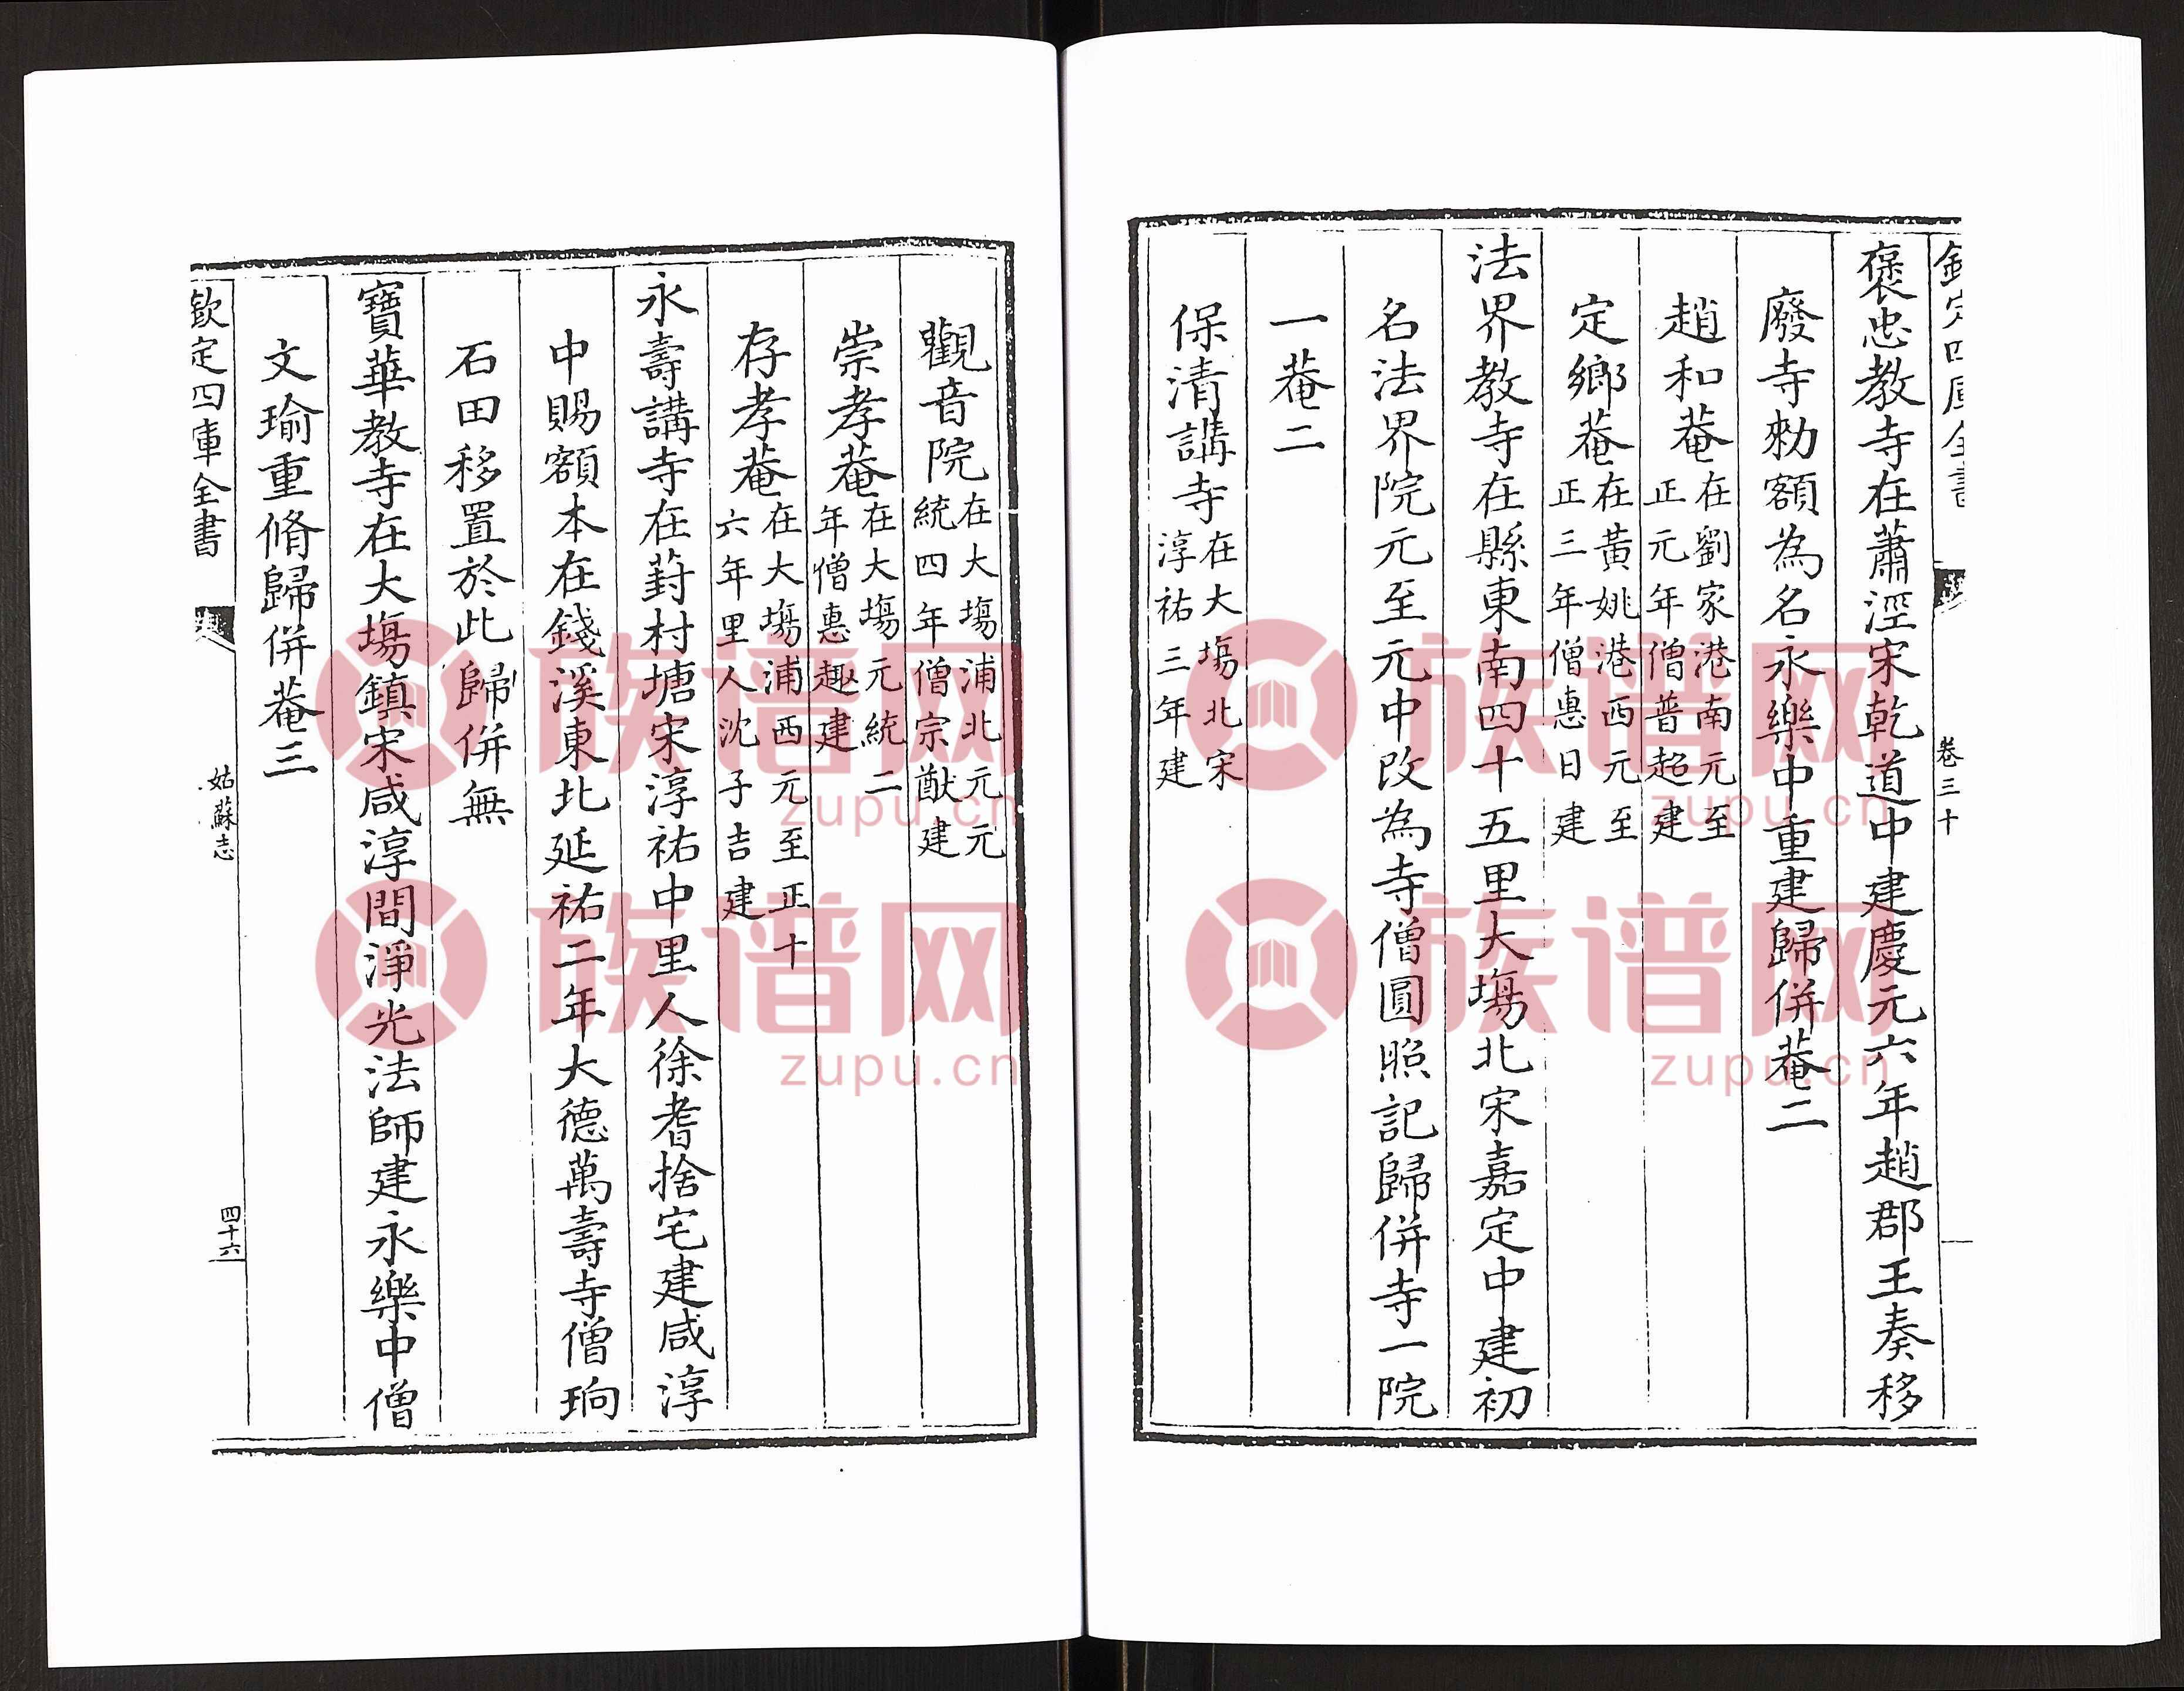 欽定四庫全書
卷三十
褒忠教寺在蕭涇宋乾道中建慶元六年趙郡王奏移
廢寺勅額為名永樂中重建歸併菴二
趙和菴在劉家港南元至
正元年僧普超建
定鄉菴在黃姚港西元至
正三年僧惠日建
法界教寺在縣東南四十五里大塲北宋嘉定中建初
名法界院元至元中改為寺僧圓照記歸併寺一院
一菴二
保清講寺在大塲北宋
淳祐三年建
觀音院在大塲浦北元元
統四年僧宗猷建
崇孝菴在大塲元統二
年僧惠趣建
存孝菴在大塲浦西元至正十
六年里人沈子吉建
永壽講寺在葑村塘宋淳祐中里人徐耆捨宅建咸淳
中賜額本在錢溪東北延祐二年大德萬壽寺僧珦
石田移置於此歸併無
寶華教寺在大塲鎮宋咸淳間淨光法師建永樂中僧
文瑜重脩歸併菴三
欽定四庫全書
姑蘇志
四十六
族谱网
zupu.cn
族谱网
zupu.cn
族谱网
zupu.cn
族谱网
zupu.cn